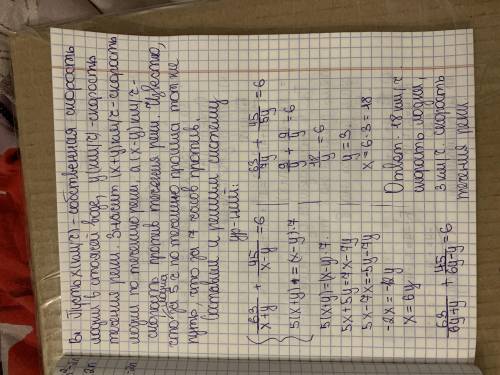 В) Пусть x(км/ч) - собственная скорость
лодки в стоячей воде, y(км/ч) - скорость
течения реки. Значит (x+y)км/ч - скорость
лодки по течению реки, а (x-y)км/ч -
скорость против течения реки. Известно,
что за 5 ч по течению прошла тот же
лодка
путь что за 7 часов против.
Составим и решим систему
ур-ний:
{ 63/(x+y) + 45/(x-y) = 6
5(x+y) = (x-y)·7
5(x+y) = (x-y)·7.
5x+5y = 7x-7y
5x-7x = -5y-7y
-2x = -12y
x = 6y
63/(6y+y) + 45/(6y-y) = 6
63/7y + 45/5y = 6
9/y + 9/y = 6
18/y = 6
y = 3
x = 6·3 = 18
Ответ: 18 км/ч.
скорость лодки,
3 км/ч. скорость
течения реки